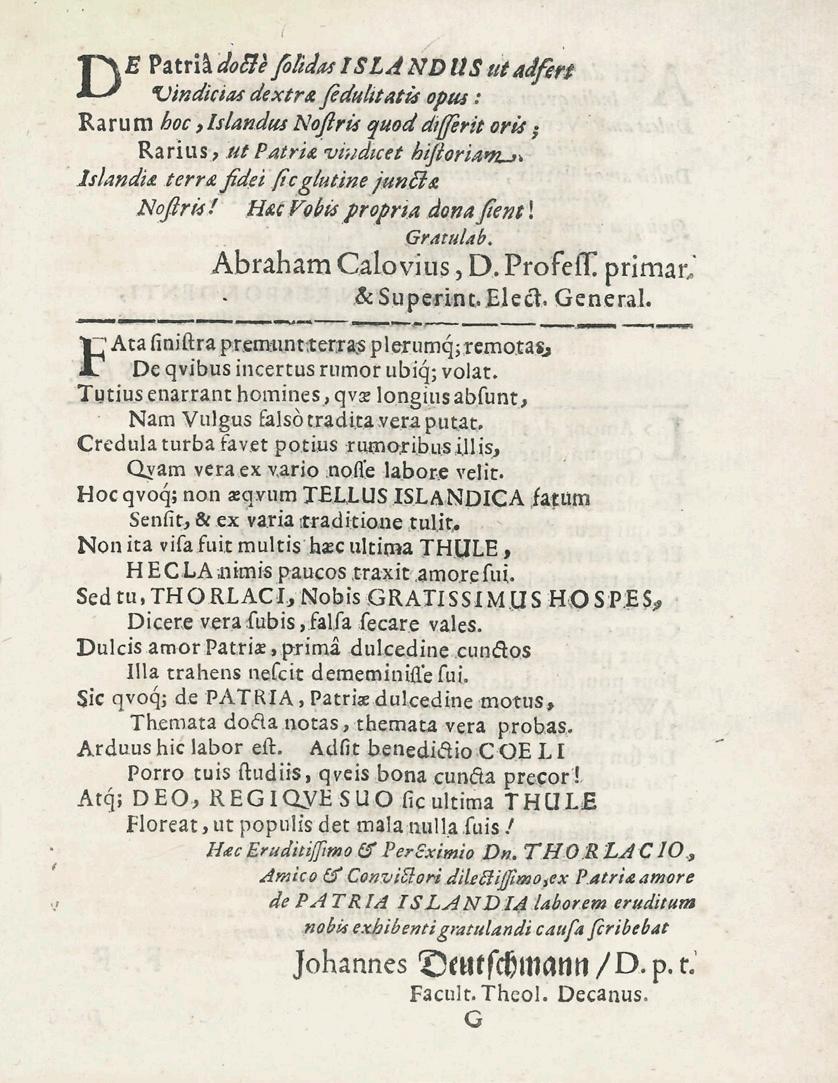 DE Patriâ doctè ſolidas ISLANDUS ut adfert
Vindicias dextræ ſedulitatis opus:
Rarum hoc, Islandus Noſtris quod diſſerit oris;
Rarius, ut Patriæ vindicet hiſtoriam.
Islandiæ terræ fidei ſic glutine junctæ
Noſtris! Hæc Vobis propria dona ſient!
Gratulab.
Abraham Calovius, D. Profeſſ. primar.
& Superint. Elect. General.
FAta ſiniſtra premunt terras plerumq́; remotas,
De qvibus incertus rumor ubiq́; volat.
Tutius enarrant homines, qvæ longius abſunt,
Nam Vulgus falsò tradita vera putat.
Credula turba favet potius rumoribus illis,
Qvam vera ex vario noſſe labore velit.
Hoc qvoq́; non æqvum TELLUS ISLANDICA fatum
Senſit, & ex varia traditione tulit.
Non ita viſa fuit multis hæc ultima THULE,
HECLA nimis paucos traxit amore ſui.
Sed tu, THORLACI, Nobis GRATISSIMUS HOSPES,
Dicere vera ſubis, falſa ſecare vales.
Dulcis amor Patriæ, primâ dulcedine cunctos
Illa trahens neſcit dememiniſſe ſui.
Sic qvoq́; de PATRIA, Patriæ dulcedine motus,
Themata docta notas, themata vera probas.
Arduus hic labor eſt. Adſit benedictio COELI
Porro tuis ſtudiis, qveis bona cuncta precor!
Atq́; DEO, REGIQVE SUO ſic ultima THULE
Floreat, ut populis det mala nulla ſuis!
Hæc Eruditiſſimo & PerEximio Dn. THORLACIO,
Amico & Convictori dilectiſſimo, ex Patriæ amore
de PATRIA ISLANDIA laborem eruditum
nobis exhibenti gratulandi cauſa ſcribebat
Johannes Deutſchmann / D. p. t.
Facult. Theol. Decanus.
G